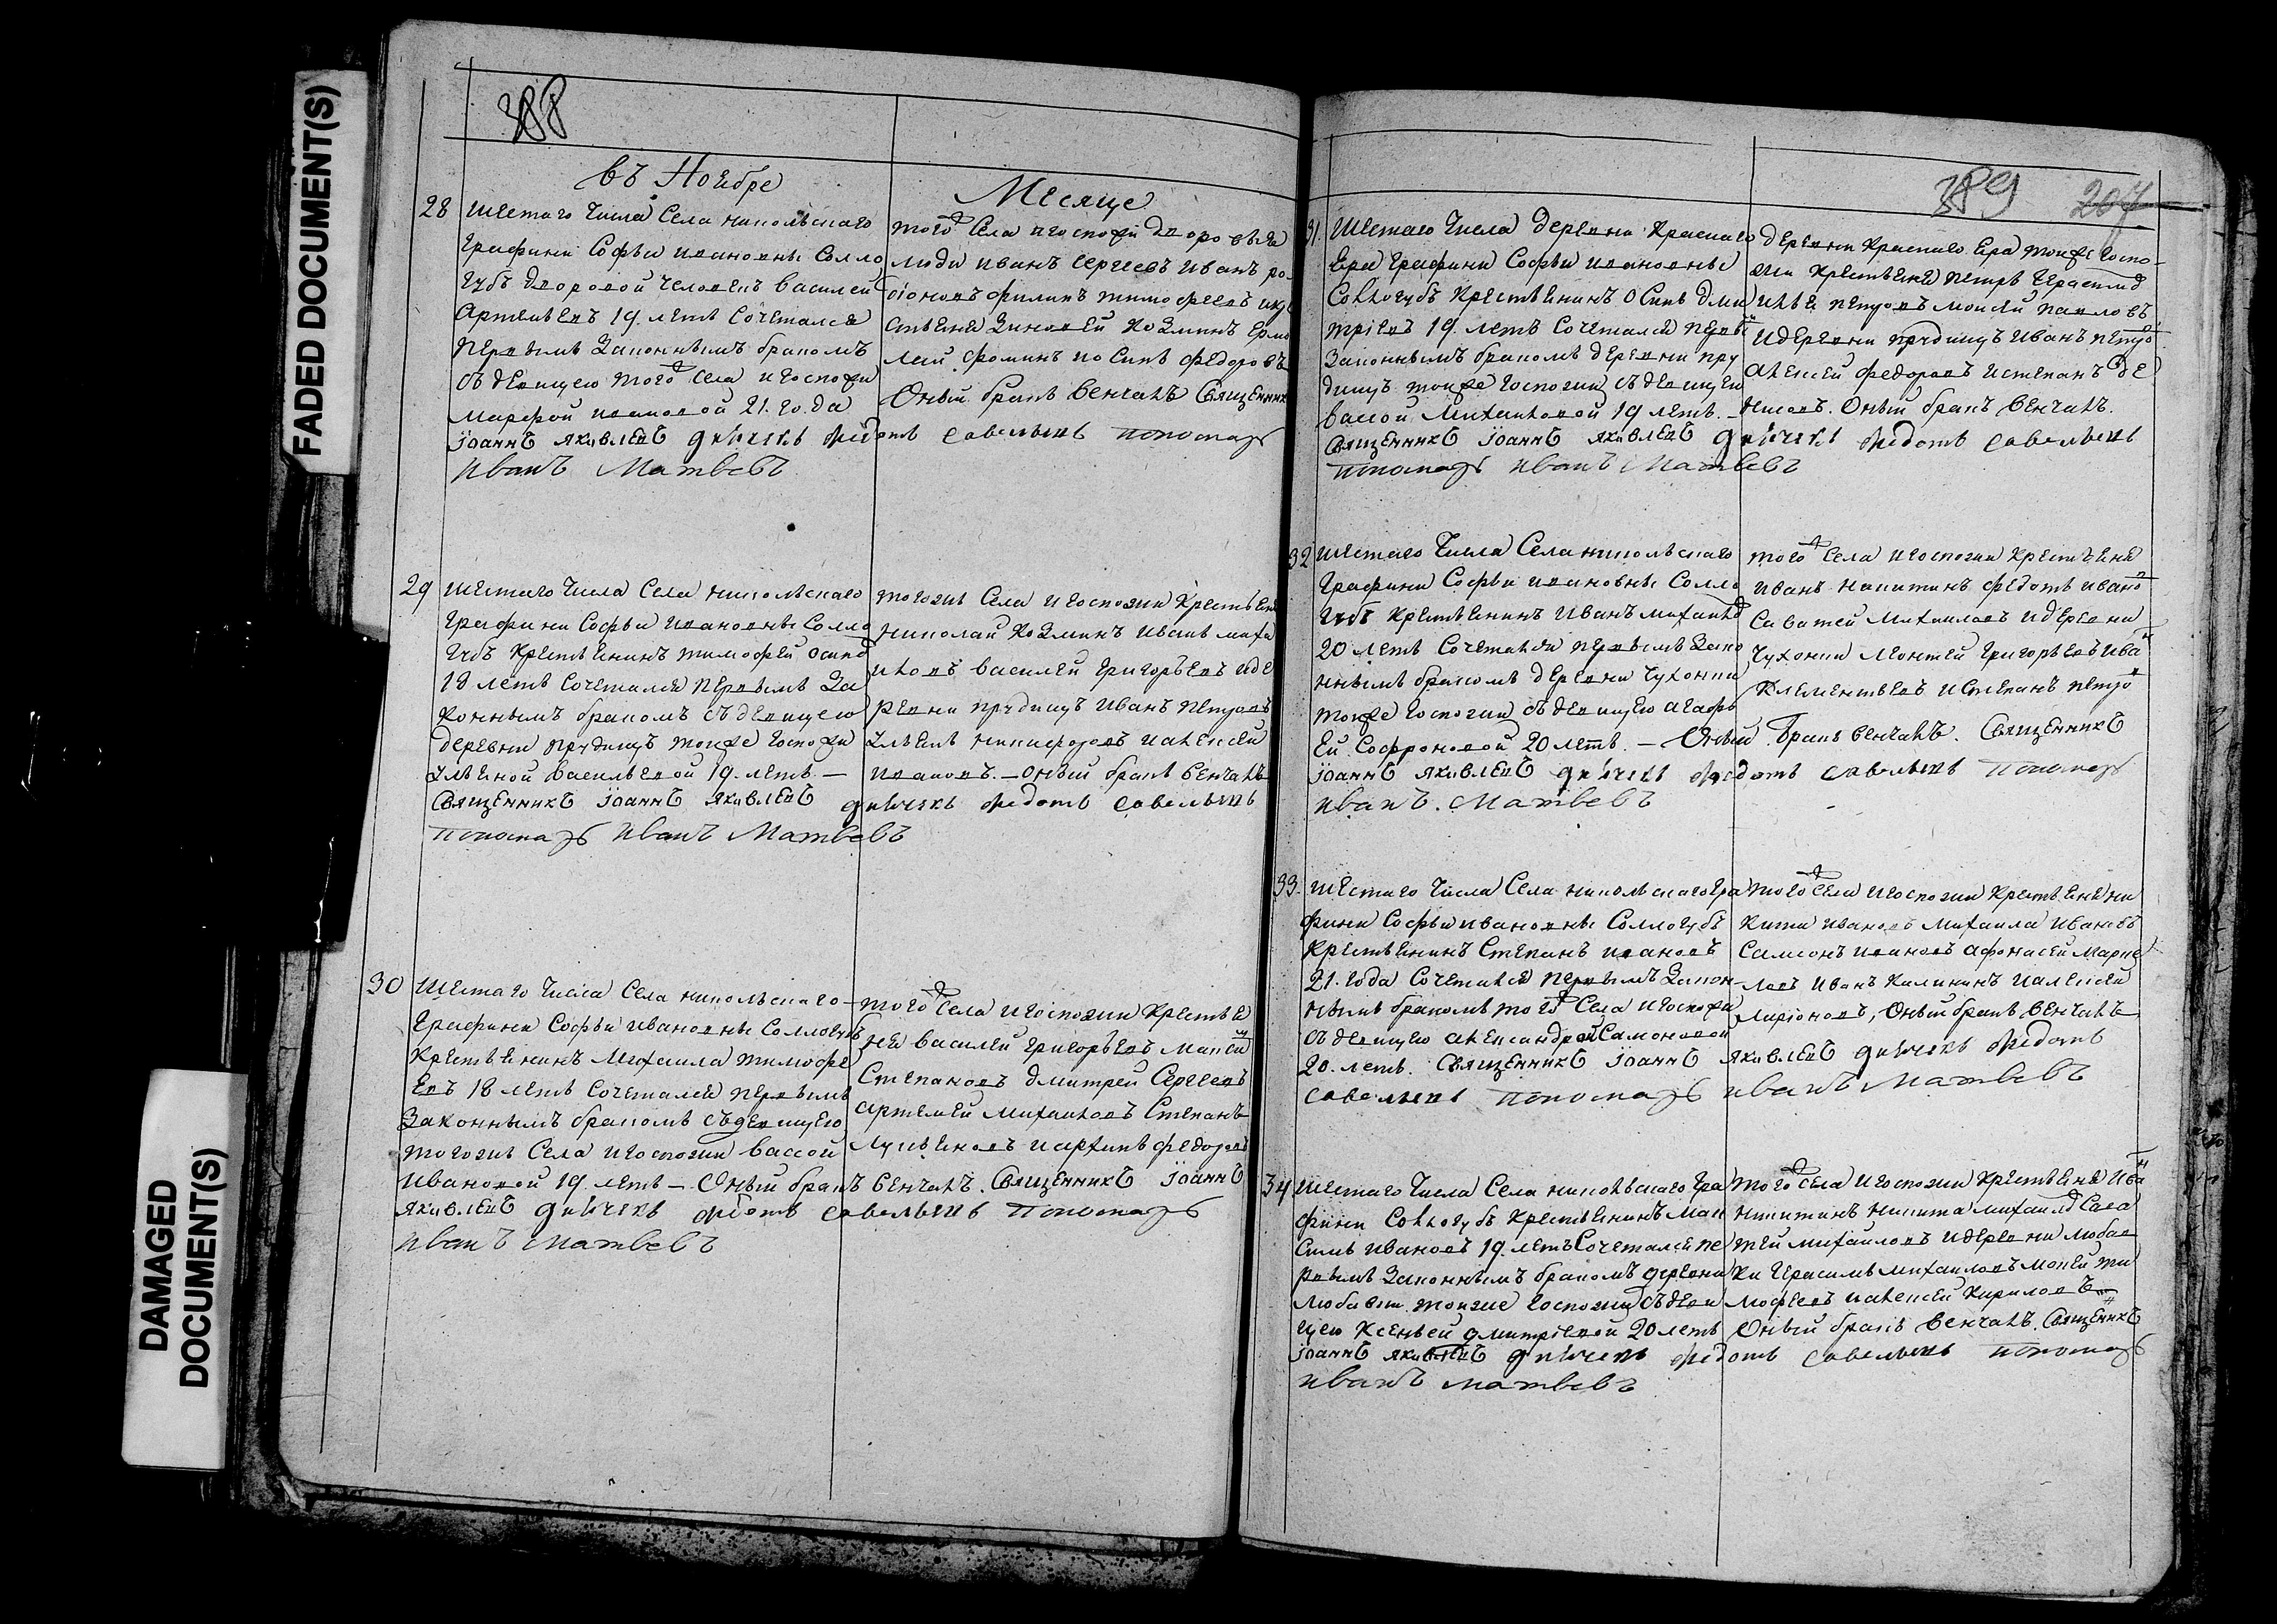 FADED DOCUMENT(S)
DAMAGED
DOCUMENT(S)
388
въ Ноябре
Месяце
28
шестаго числа Села никольскаго
Графини Софьи ивановны Солло
губъ дворовой человекъ василеи
Артемьевъ 19. летъ Сочетался
первымъ Законнымъ бракомъ
съ девицею тогож Села и Госпожи
марфой ивановой 21. го.да
того ж Села и госпожи дворовыя
люди иванъ сергеевъ иванъ ро
діоновъ филипъ тимофеевъ икре
стьяня Зиновей Козминъ Ермо
лай фоминъ иосипъ федоровъ
Оный бракъ венчалъ Священникъ
іоаннъ яковлевъ дьячекъ федотъ савельевъ пономарь
иванъ Матвевъ
29
шестаго числа Села никольскаго
Графини Софьи ивановны Солло
губъ крестьянинъ тимофей осипо
18 летъ сочетался первымъ За
коннымъ бракомъ съ девицею
деревни прудищъ тоиже госпожи
ульяной васильевой 19. летъ. —
тогожъ Села и госпожи крестьяня
николай Козминъ иванъ миха
иловъ василей григорьевъ иде
ревни прудищъ иванъ петровъ
ульянъ никифоровъ иалексей
ивановъ. — оный бракъ венчалъ
Священникъ іоаннъ яковлевъ дьячекъ федотъ савельевъ
пономарь иванъ Матвевъ
30
Шестаго числа Села никольскаго
Графини Софьи ивановны Соллогубъ
крестьянинъ Михаила тимофе
евъ 18 летъ Сочетался первымъ
Законнымъ бракомъ съ девицею
тогожъ Села и госпожи вассой
ивановой 19. летъ — Оный бракъ венчалъ. Священникъ іоаннъ
того ж Села и госпожи крестья
ня василей григорьевъ Максим
Степановъ дмитрей Сергеевъ
артемей михаиловъ Степанъ
Лукьяновъ иархипъ федоровъ
яковлевъ дьячекъ федотъ савельевъ пономарь
иванъ матвевъ
389 207
31.
Шестаго числа деревни краснаго
Яра Графини Софьи ивановны
Соллогубъ крестьянинъ Осипъ дми
тріевъ 19. летъ Сочетался первы
Законнымъ бракомъ деревни пру
дищъ тоиже госпожи съ девицей
вассой Михаиловой 19 летъ. —
деревни краснаго Яра тоиже госпо
жи крестьяня петръ Герасимо
илья петровъ моисей павловъ
идеревни прудищъ иванъ петро
алексей федоровъ истепанъ де
нисовъ. Оный бракъ венчалъ.
Священникъ іоаннъ яковлевъ дьячекъ федотъ савельевъ
пономарь иванъ Матвевъ
32
шестаго числа Села никольскаго
Графини Софьи ивановны Солло
губъ крестьянинъ иванъ михаило
20 летъ Сочетался первымъ Зако
ннымъ бракомъ деревни Чухонки
тоиже госпожи съ девицею агафь
ей Софроновой 20 летъ. — Оный бракъ венчалъ. Священникъ
того ж Села и госпожи крестьяня
иванъ никитинъ федотъ ивано
Саватей Михаиловъ идеревни
Чухонки Леонтей григорьевъ ива
Клементьевъ истепанъ петро
іоаннъ яковлевъ дьячекъ федотъ савельевъ пономарь
иванъ. Матвевъ
33.
шестаго числа Села никольскаго Гра
фини Софьи ивановны Соллогубъ
крестьянинъ Степанъ ивановъ
21. года Сочетался первымъ Закон
нымъ бракомъ тогож Села и госпожи
съ девицею александрой Самоновой
20. летъ. Священникъ іоаннъ яковлевъ дьячекъ федотъ
того ж Села и госпожи крестьяня ни
кита ивановъ михаила ивановъ
Самсонъ ивановъ афонасей Марке
ловъ иванъ Калининъ иалексей
Ларіоновъ, Оный бракъ венчалъ
савельевъ пономарь иванъ Матвевъ
34
шестаго числа Села никольскаго Гра
фини Соллогубъ крестьянинъ мак
симъ ивановъ 19. летъ Сочетался пе
рвымъ Законнымъ бракомъ деревни
Любавки тоиже госпожи съ деви
цею Ксеньей дмитріевой 20 летъ
того ж Села и госпожи крестьяня ива
никитинъ никита михаило Сава
тей михаиловъ идеревни Любав
ки герасимъ михаиловъ мокей ти
мофеевъ иалексей Кириловъ
Оный бракъ венчалъ. Священникъ
іоаннъ яковлевъ дьячекъ федотъ савельевъ пономарь
иванъ матвевъ